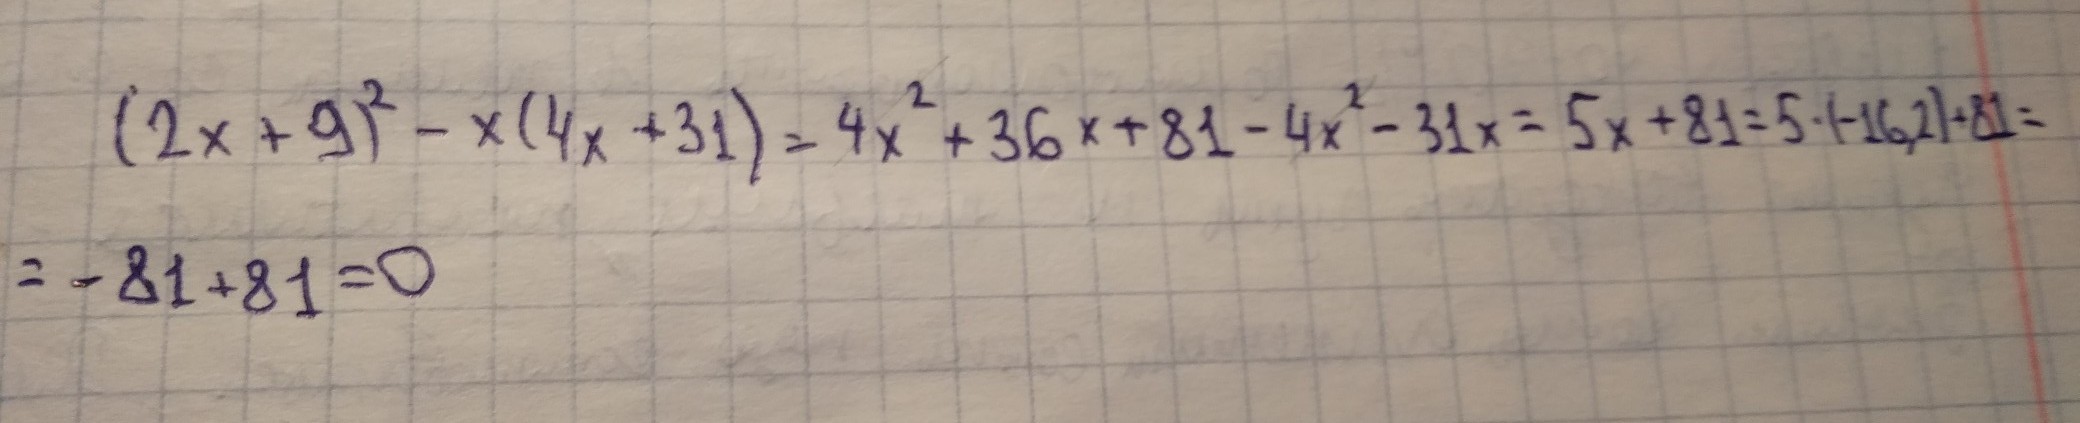 (2x+9)²-x(4x+31)=4x²+36x+81-4x²-31x=5x+81=5·(-16,2)+81=
=-81+81=0